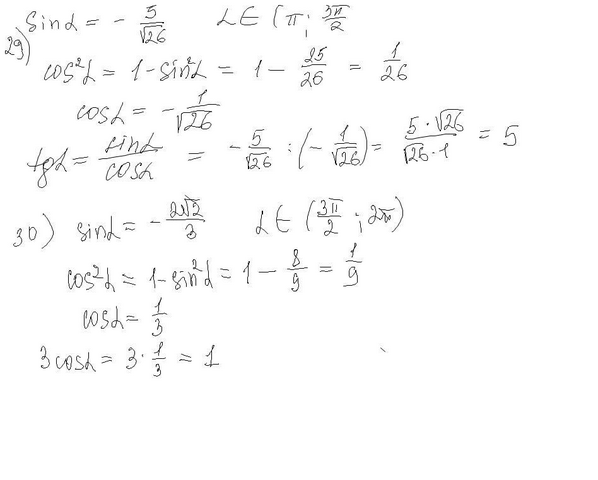 29) sinα = - 5/√26 α∈(π; 3π/2
cos²α = 1-sin²α = 1 - 25/26 = 1/26
cosα = - 1/√26
tgα = sinα/cosα = - 5/√26 : (- 1/√26) = 5·√26/√26·1 = 5
30) sinα = - 2√2/3 α∈(3π/2; 2π)
cos²α = 1-sin²α = 1 - 8/9 = 1/9
cosα = 1/3
3cosα = 3·1/3 = 1